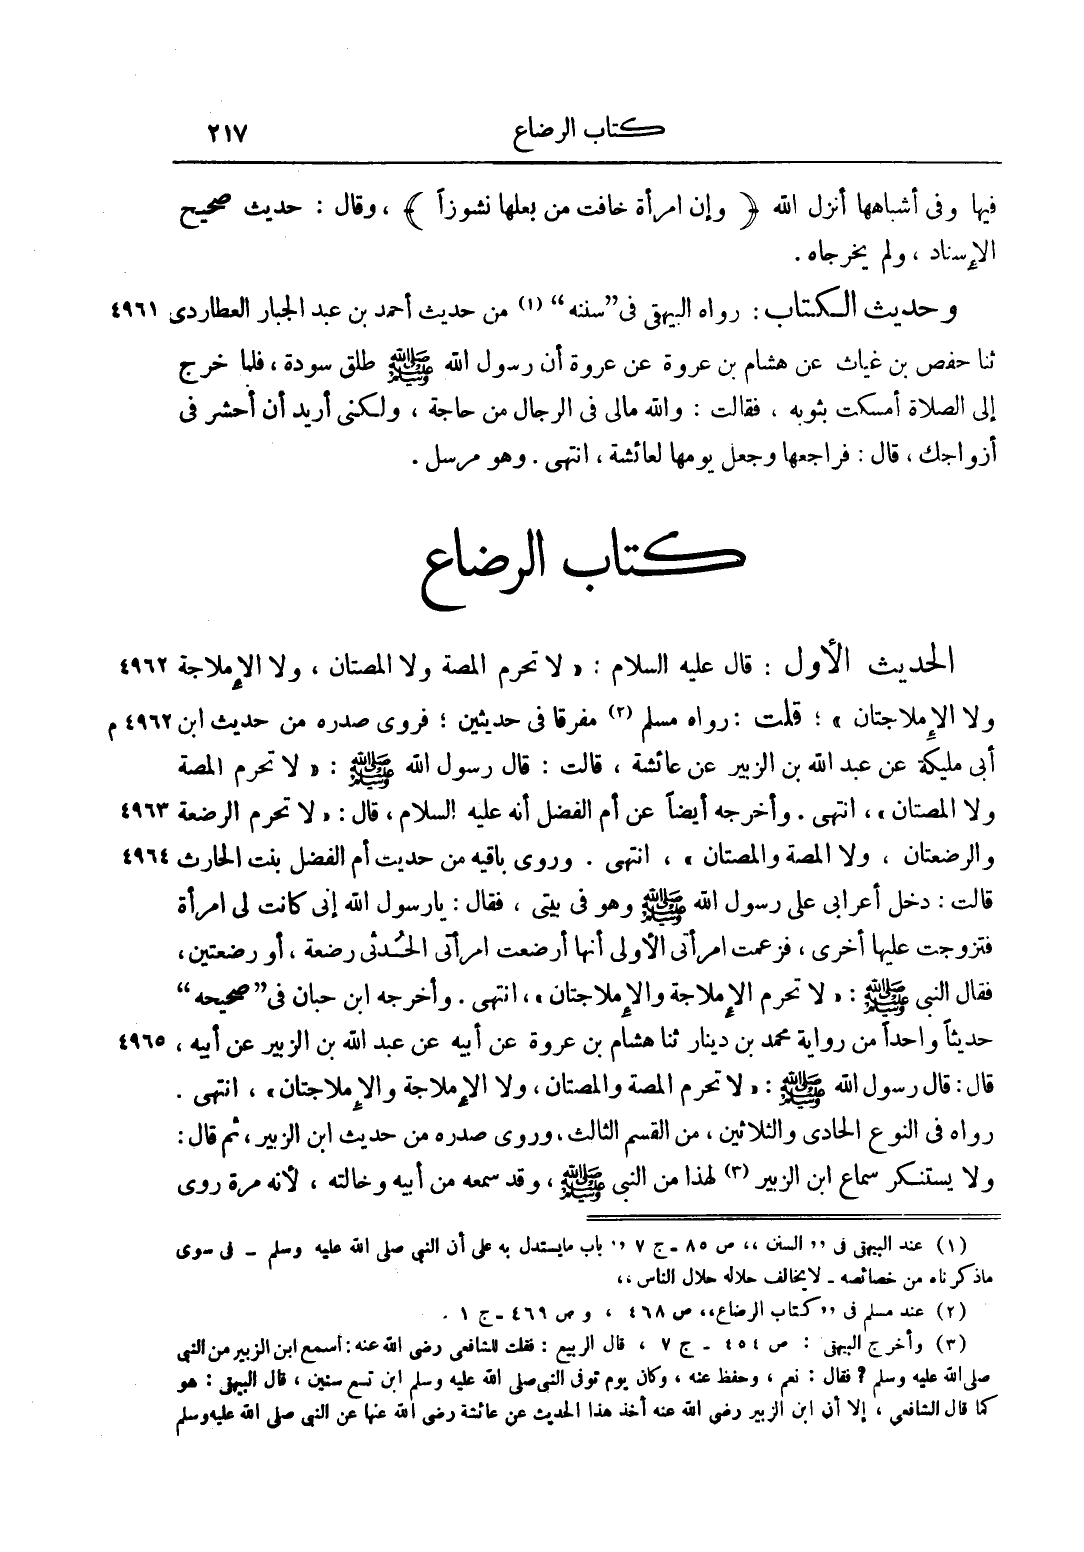 كتاب الرضاع ٢١٧
فيها وفى أشباهها أنزل الله ﴿ وإن امرأة خافت من بعلها نشوزاً ﴾ ، وقال : حديث صحيح
الإسناد ، ولم يخرجاه .
وحديث الكتاب : رواه البيهقى فى "سننه" (١) من حديث أحمد بن عبد الجبار العطاردى ٤٩٦١
ثنا حفص بن غياث عن هشام بن عروة عن عروة أن رسول الله ﷺ طلق سودة ، فلما خرج
إلى الصلاة أمسكت بثوبه ، فقالت : والله مالى فى الرجال من حاجة ، ولكنى أريد أن أحشر فى
أزواجك ، قال : فراجعها وجعل يومها لعائشة ، انتهى . وهو مرسل .
كتاب الرضاع
الحديث الأول : قال عليه السلام : « لا تحرم المصة ولا المصتان ، ولا الإملاجة ٤٩٦٢
ولا الإملاجتان » ؛ قلت : رواه مسلم (٢) مفرقا فى حديثين ؛ فروى صدره من حديث ابن ٤٩٦٢ م
أبى مليكة عن عبد الله بن الزبير عن عائشة ، قالت : قال رسول الله ﷺ : « لا تحرم المصة
ولا المصتان » ، انتهى . وأخرجه أيضاً عن أم الفضل أنه عليه السلام ، قال : « لا تحرم الرضعة ٤٩٦٣
والرضعتان ، ولا المصة والمصتان » ، انتهى . وروى باقيه من حديث أم الفضل بنت الحارث ٤٩٦٤
قالت : دخل أعرابى على رسول الله ﷺ وهو فى بيتى ، فقال : يارسول الله إنى كانت لى امرأة
فتزوجت عليها أخرى ، فزعمت امرأتى الأولى أنها أرضعت امرأتى الحُدثى رضعة ، أو رضعتين ،
فقال النبى ﷺ : « لا تحرم الإملاجة والإملاجتان » ، انتهى . وأخرجه ابن حبان فى "صحيحه"
حديثاً واحداً من رواية محمد بن دينار ثنا هشام بن عروة عن أبيه عن عبد الله بن الزبير عن أبيه ، ٤٩٦٥
قال : قال رسول الله ﷺ : « لا تحرم المصة والمصتان ، ولا الإملاجة والإملاجتان » ، انتهى .
رواه فى النوع الحادى والثلاثين ، من القسم الثالث ، وروى صدره من حديث ابن الزبير ، ثم قال :
ولا يستنكر سماع ابن الزبير (٣) لهذا من النبى ﷺ ، وقد سمعه من أبيه وخالته ، لأنه مرة روى
(١) عند البيهقى فى ,, السنن ،، ص ٨٥ ـ ج ٧ ,, باب مايستدل به على أن النبى صلى الله عليه وسلم ـ فى سوى
ماذكرناه من خصائصه ـ لايخالف حلاله حلال الناس ،،
(٢) عند مسلم فى ,,كتاب الرضاع،، ص ٤٦٨ ، و ص ٤٦٩ ـ ج ١ .
(٣) وأخرج البيهقى : ص ٤٥٤ ـ ج ٧ ، قال الربيع : فقلت للشافعى رضى الله عنه : أسمع ابن الزبير من النبى
صلى الله عليه وسلم ؟ فقال : نعم ، وحفظ عنه ، وكان يوم توفى النبى صلى الله عليه وسلم ابن تسع سنين ، قال البيهقى : هو
كما قال الشافعى ، إلا أن ابن الزبير رضى الله عنه أخذ هذا الحديث عن عائشة رضى الله عنها عن النبى صلى الله عليه وسلم